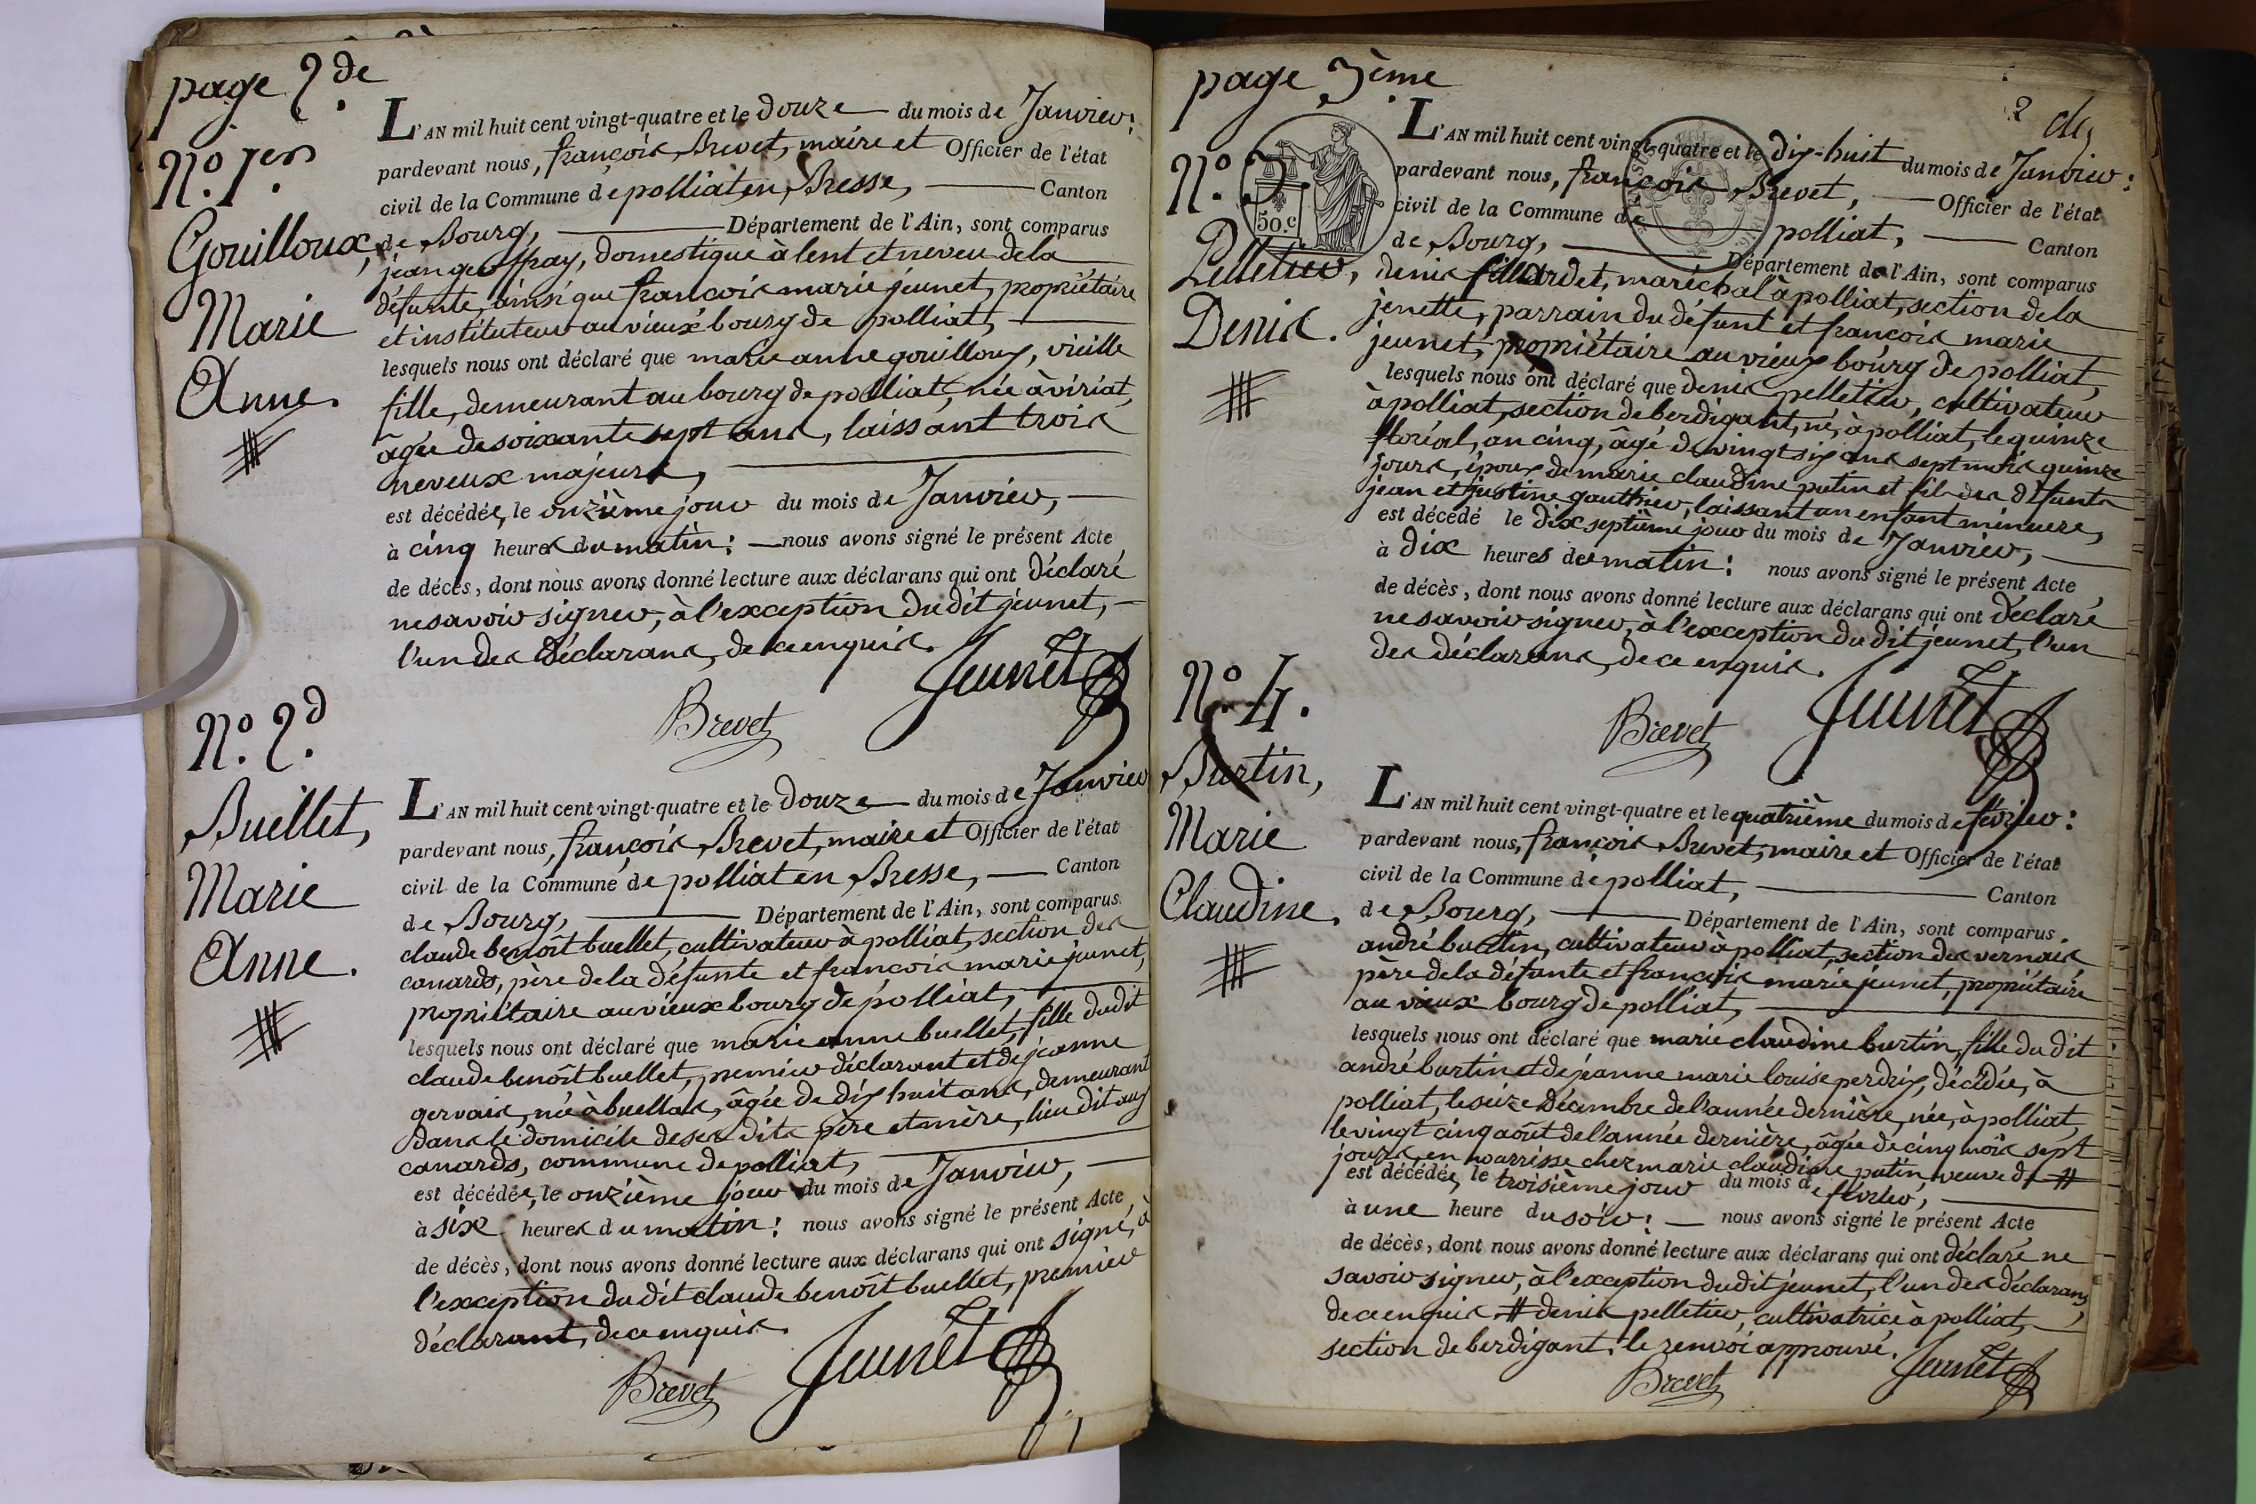 page 2.de
N.o 1.er
Gouilloux,
Marie
Anne.
L'AN mil huit cent vingt-quatre et le douze du mois de Janvier:
pardevant nous, françois Brevet, maire et Officier de l'état
civil de la Commune de polliat en Bresse, Canton
de Bourg, Département de l'Ain, sont comparus
jean geoffray, domestique à lent et neveu de la
défunte, ainsi que françois marie jeunet, propriétaire
et instituteur au vieux bourg de polliat,
lesquels nous ont déclaré que marie anne gouilloux, vieille
fille, demeurant au bourg de polliat, née à viriat,
âgée de soixante sept ans, laissant trois
neveux majeurs,
est décédée, le onzième jour du mois de Janvier,
à cinq heures du matin: nous avons signé le présent Acte
de décès, dont nous avons donné lecture aux déclarans qui ont déclaré
ne savoir signer, à l'exception du dit jeunet,
l'un des déclarans, de ce enquis.
Jeunet
Brevet
N.o 2.d
Buellet,
Marie
Anne.
L'AN mil huit cent vingt-quatre et le douze du mois de Janvier
pardevant nous, françois Brevet, maire et Officier de l'état
civil de la Commune de polliat en Bresse, Canton
de Bourg, Département de l'Ain, sont comparus
claude benoît buellet, cultivateur à polliat, section des
canards, père de la défunte et françois marie jeunet,
propriétaire au vieux bourg de polliat,
lesquels nous ont déclaré que marie anne buellet, fille du dit
claude benoît buellet, premier déclarant et de jeanne
gervais, née à buellas, âgée de dix huit ans, demeurant
dans le domicile de ses dits père et mère, lieu dit aux
canards, commune de polliat,
est décédée, le onzième jour du mois de Janvier,
à six heures du matin: nous avons signé le présent Acte
de décès, dont nous avons donné lecture aux déclarans qui ont signé, à
l'exception du dit claude benoît buellet, premier
déclarant, de ce enquis.
Jeunet
Brevet
page 3ème
N.o 3.
50.c
Pelletier,
Denis.
L'AN mil huit cent vingt-quatre et le dix-huit du mois de Janvier:
pardevant nous, françois Brevet, Officier de l'état
civil de la Commune de polliat, Canton
de Bourg, Département de l'Ain, sont comparus
denis fillardet, maréchal à polliat, section de la
jenette, parrain du défunt et françois marie
jeunet, propriétaire au vieux bourg de polliat,
lesquels nous ont déclaré que denis pelletier, cultivateur
à polliat, section de berdigant, né, à polliat, le quinze
floréal, an cinq, âgé de vingt six ans sept mois quinze
jours, époux de marie claudine putin et fils des défunts
jean et justine gauthier, laissant un enfant mineure,
est décédé le dix septième jour du mois de Janvier,
à dix heures du matin: nous avons signé le présent Acte
de décès, dont nous avons donné lecture aux déclarans qui ont déclaré
ne savoir signer, à l'exception du dit jeunet, l'un
des déclarans, de ce enquis.
Jeunet
Brevet
N.o 4.
Burtin,
Marie
Claudine.
L'AN mil huit cent vingt-quatre et le quatrième du mois de février:
pardevant nous, françois Brevet, maire et Officier de l'état
civil de la Commune de polliat, Canton
de Bourg, Département de l'Ain, sont comparus
andré burtin, cultivateur à polliat, section des vernais
père de la défunte et françois marie jeunet, propriétaire
au vieux bourg de polliat,
lesquels nous ont déclaré que marie claudine burtin, fille du dit
andré burtin et de jeanne marie louise perdrix, décédée, à
polliat, le seize décembre de l'année dernière, née, à polliat,
le vingt cinq août de l'année dernière, âgée de cinq mois sept
jours, en nourrisse chez marie claudine putin, veuve de #
est décédée, le troisième jour du mois de février,
à une heure du soir: nous avons signé le présent Acte
de décès, dont nous avons donné lecture aux déclarans qui ont déclaré ne
savoir signer, à l'exception du dit jeunet, l'un des déclarans,
de ce enquis. # denis pelletier, cultivatrice à polliat,
section de berdigant. le renvoi approuvé.
Jeunet
Brevet